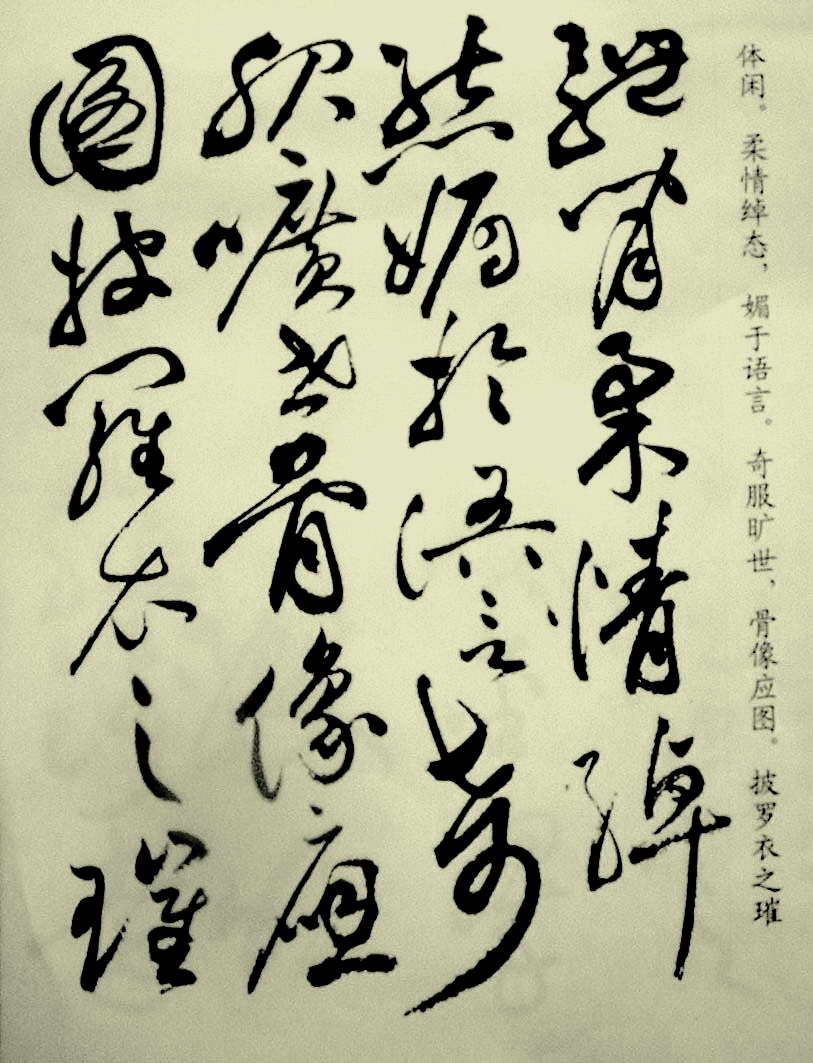 体闲。柔情绰态，媚于语言。奇服旷世，骨像应图。披罗衣之璀
體閒柔情綽
態媚於語言奇
服曠世骨像應
圖披羅衣之璀